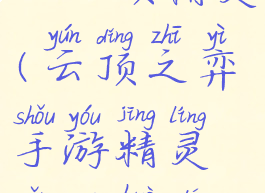 yún dǐng zhī yì
(云顶之弈
shǒu yóu jīng líng
手游精灵